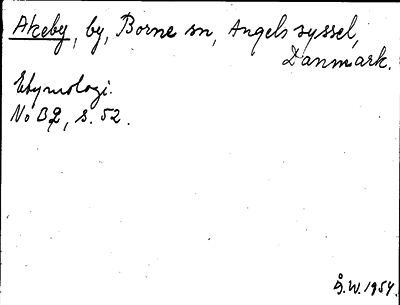 Akeby, by, Borne sn, Angels syssel,
Danmark.
Etymologi.
NoB 2, s. 52.
Å.W. 1954.